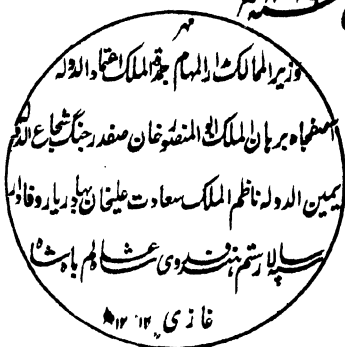 مهر
وزیر الممالک مدار المهام جمدة الملک اعتماد الدوله
آصفجاه برهان الملک ابو المنصور خان صفدر جنگ شجاع الدوله
یمین الدوله ناظم الملک سعادت علیخان بهادر یار وفادار
سپه سالار رستم هند فدوی شاه عالم بادشاه
غازی ۱۲۱۲